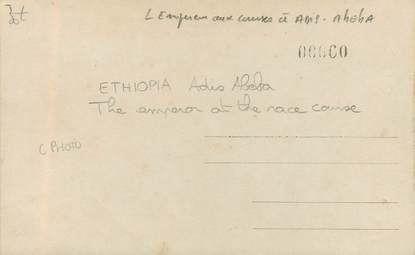 L'Empereur aux courses à Adis-Abeba
00060
ETHIOPIA Adis Abeba
The emperor at the race course
C PHOTO